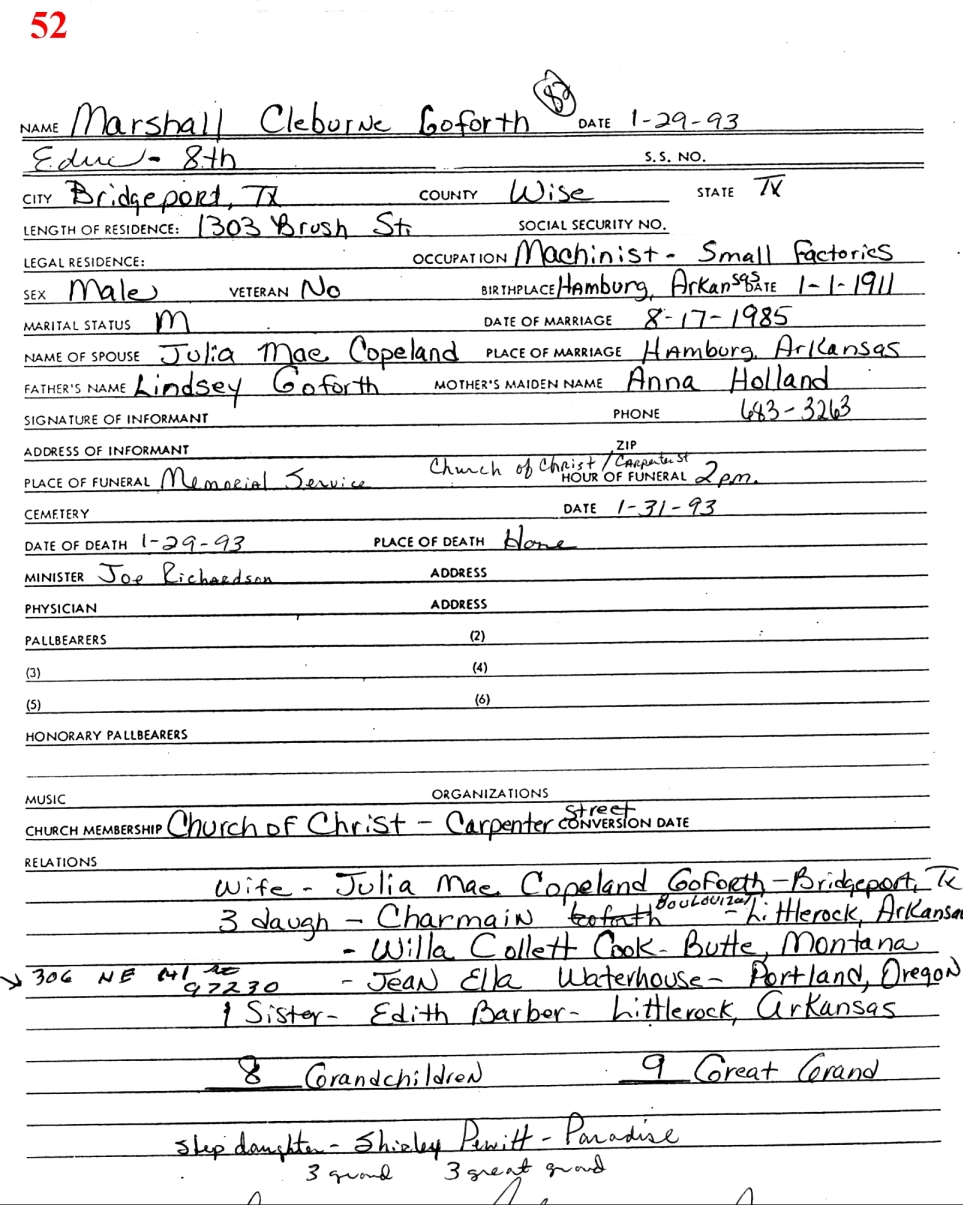 52
82
NAME Marshall Cleburne Goforth DATE 1-29-93
Educ - 8th S.S. NO.
CITY Bridgeport, TX COUNTY Wise STATE TX
LENGTH OF RESIDENCE: 1303 Brush St. SOCIAL SECURITY NO.
LEGAL RESIDENCE: OCCUPATION Machinist - Small Factories
SEX Male VETERAN No BIRTHPLACE Hamburg, Arkansas DATE 1-1-1911
MARITAL STATUS M DATE OF MARRIAGE 8-17-1985
NAME OF SPOUSE Julia Mae Copeland PLACE OF MARRIAGE Hamburg, Arkansas
FATHER'S NAME Lindsey Goforth MOTHER'S MAIDEN NAME Anna Holland
SIGNATURE OF INFORMANT PHONE 683-3263
ADDRESS OF INFORMANT ZIP
PLACE OF FUNERAL Memorial Service Church of Christ / Carpenter St HOUR OF FUNERAL 2 pm.
CEMETERY DATE 1-31-93
DATE OF DEATH 1-29-93 PLACE OF DEATH Home
MINISTER Joe Richardson ADDRESS
PHYSICIAN ADDRESS
PALLBEARERS (2)
(3) (4)
(5) (6)
HONORARY PALLBEARERS
MUSIC ORGANIZATIONS
CHURCH MEMBERSHIP Church of Christ - Carpenter Street CONVERSION DATE
RELATIONS
Wife - Julia Mae Copeland Goforth - Bridgeport, Tx
3 daugh - Charmain Goforth - Littlerock, Arkansa
- Willa Collett Cook - Butte, Montana
306 NE 141 97230 - Jean Ella Waterhouse - Portland, Oregon
1 Sister - Edith Barber - Littlerock, Arkansas
8 Grandchildren 9 Great Grand
step daughter - Shirley Pewitt - Paradise
3 grand 3 great grand